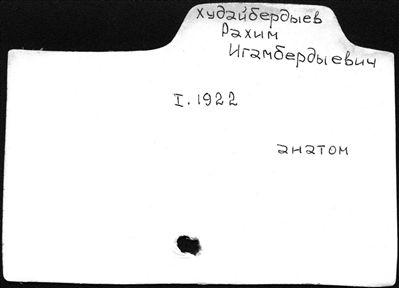 Худайбердыев
Рахим
Игамбердыевич
I.1922
анатом